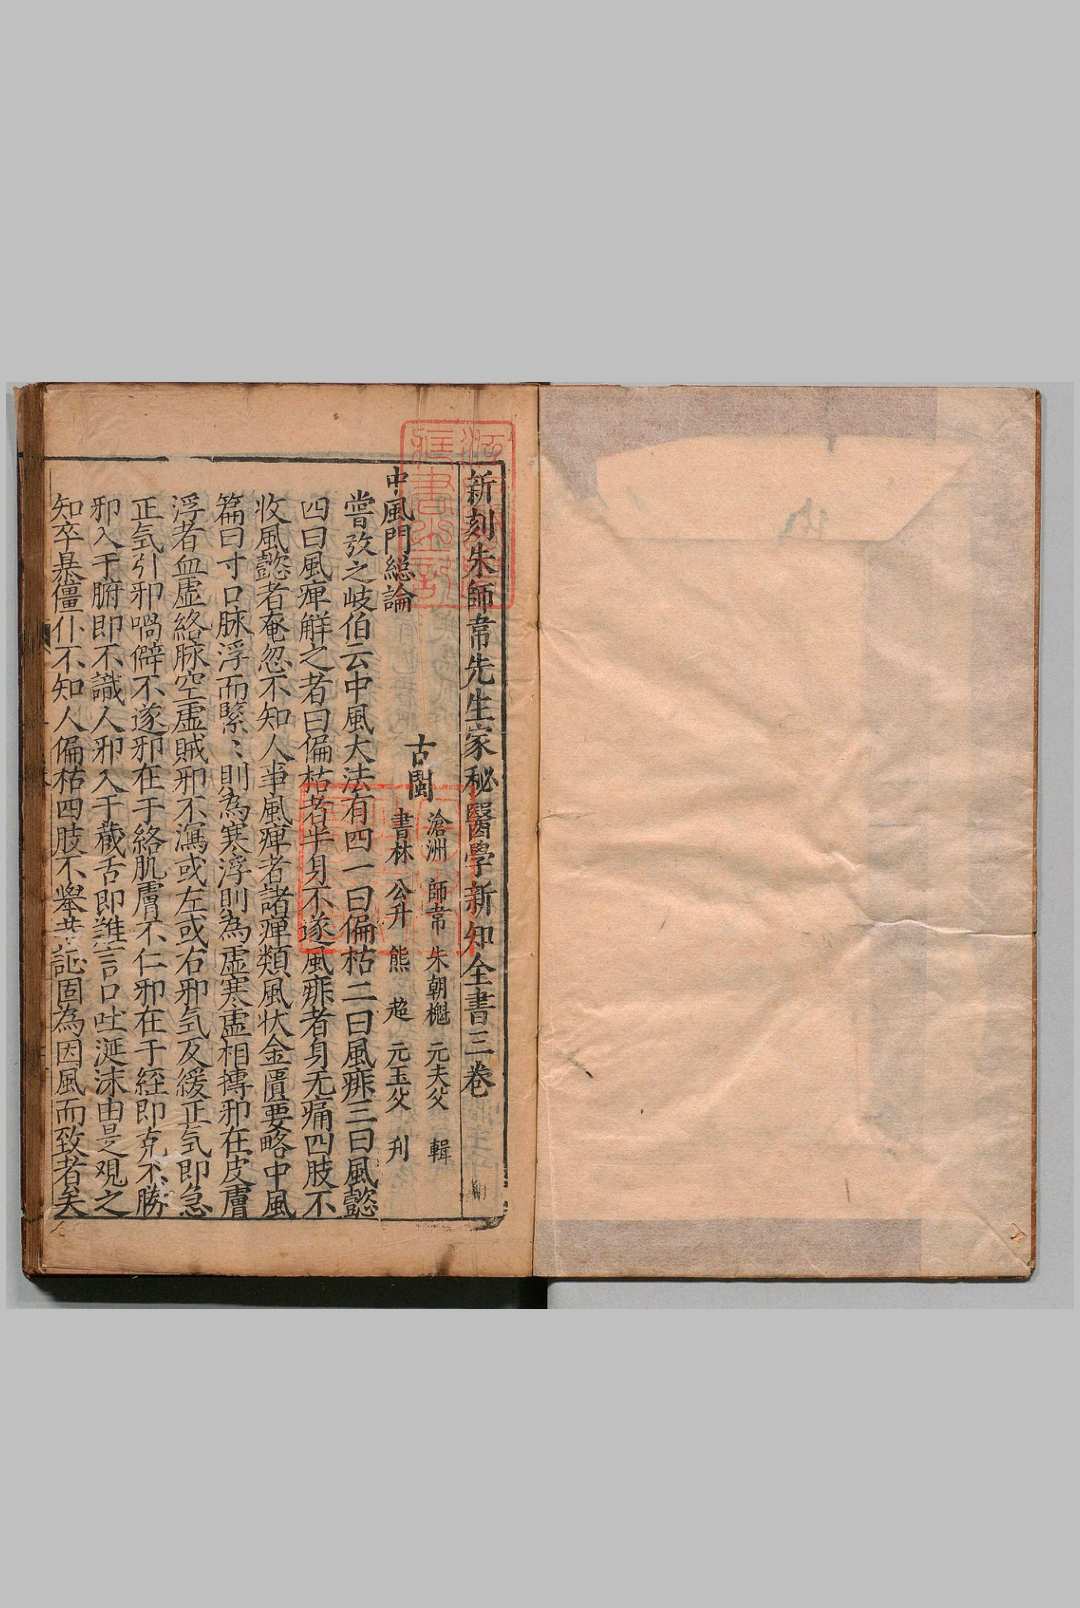 新刻朱師韋先生家秘醫學新知全書三卷
古閩
滄洲 師韋 朱朝櫆 元夫父 輯
書林 公升 熊 超 元玉父 刋
中風門総論
嘗攷之岐伯云中風大法有四一曰偏枯二曰風痱三曰風懿
四曰風痺觧之者曰偏枯者半身不遂風痱者身无痛四肢不
收風懿者奄忽不知人事風痺者諸痺類風状金匱要略中風
篇曰寸口脉浮而緊〻則為寒浮則為虛寒虛相摶邪在皮膚
浮者血虛絡脉空虛賊邪不瀉或左或右邪氣反緩正氣即急
正氣引邪喎僻不遂邪在于絡肌膚不仁邪在于經即㐳不勝
邪入于腑即不識人邪入于蔵舌即難言口吐涎沫由是观之
知卒暴僵仆不知人偏枯四肢不舉等証固為因風而致者矣